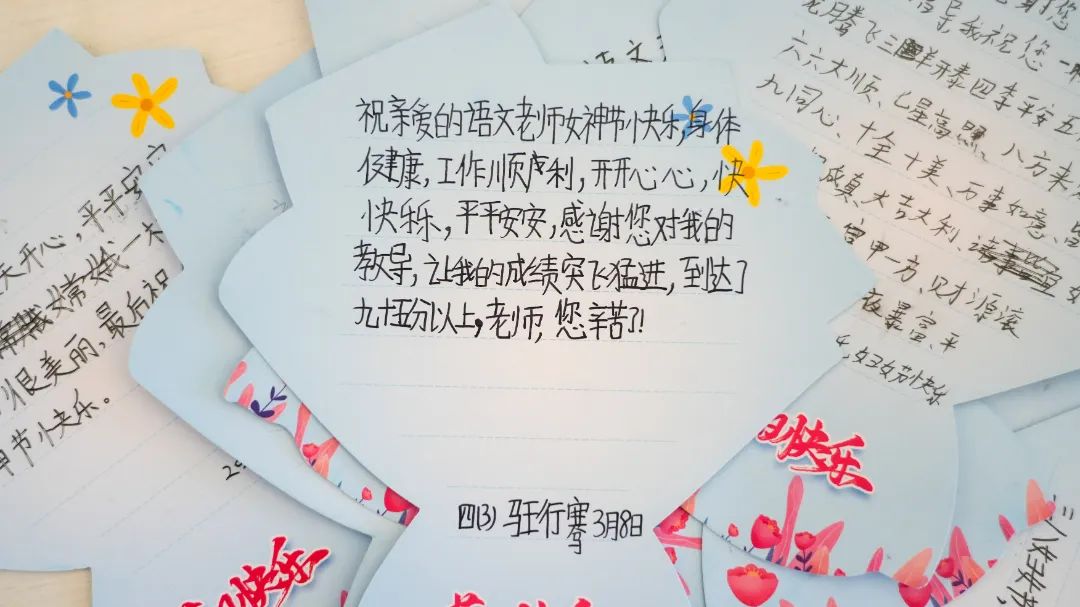 祝亲爱的语文老师女神节快乐,身体
健康,工作顺利,开开心心,快
快乐乐,平平安安,感谢您对我的
教导,让我的成绩突飞猛进,到达了
九十五分以上,老师,您辛苦了!
四(3) 驻行骞 3月8日
天开心,平平安安
嫦娥一木
很美丽,最后祝
神节快乐。
我祝您一
龙月腾飞三羊开泰四季平安五
六六大顺、七星高照、八方来
九同心、十全十美、万事如意、
成真、大吉大利、
富甲一方、财源滚
夜暴富、平
妇女节快乐
快乐
快乐